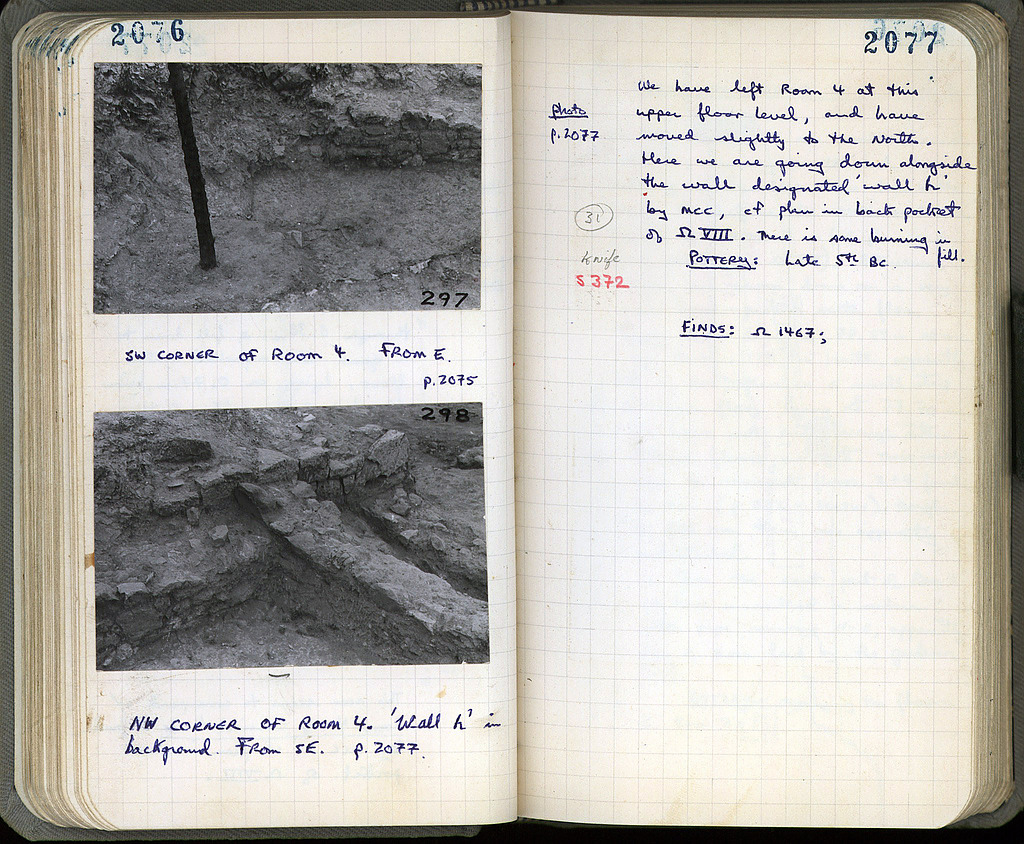 2076
297
SW CORNER OF ROOM 4. FROM E.
p.2075
298
NW CORNER OF ROOM 4. 'Wall h' in
background. From SE. p.2077.
2077
photo
p.2077
We have left Room 4 at this
upper floor level, and have
moved slightly to the North.
Here we are going down alongside
the wall designated 'wall h'
by MCC, cf plan in back pocket
of Ω VIII. There is some burning in
fill.
31
Knife
S 372
POTTERY: Late 5th BC.
FINDS: Ω 1467;